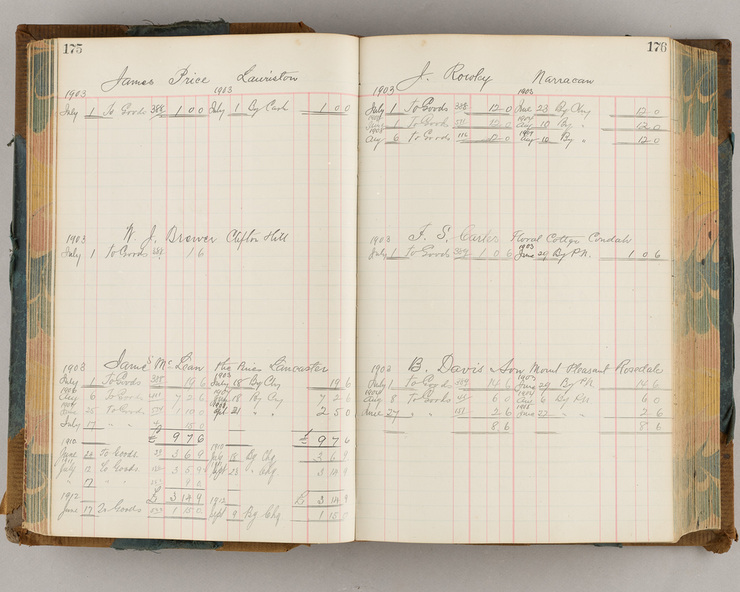 175
James Price Lauriston
1903 1903
July 1 To Goods 1 0 0 July 1 By Cash 1 0 0
W. J. Brewer Clifton Hill
1903
July 1 To Goods 1 6
James McLean The Pines Lancaster
1903 1903
July 1 To Goods 19 6 July 18 By Chq 19 6
Aug 6 To Goods 7 2 6 18 By Chq 7 2 6
25 To Goods 1 10 0 21 " " 2 5 0
July 17 " 15 0
£ 9 7 6 £ 9 7 6
1910 1910
June 24 To Goods 3 6 9 18 By Chq 3 6 9
July 12 To Goods 3 5 9 Sept 23 " Chq 3 14 9
" 17 " 9 0
£ 3 14 9 £ 3 14 9
1912 1912
June 17 To Goods 1 15 0 Sept 9 By Chq 1 15 0
176
J. Rowley Narracan
1903 1903
July 1 To Goods 12 0 June 23 By Chq 12 0
1 To Goods 12 0 Aug 10 By " 12 0
Aug 6 To Goods 12 0 Aug 10 By " 12 0
F. S. Carter Floral Cottage Condah
1903 1903
July 1 To Goods 1 0 6 June 29 By P.N. 1 0 6
B. Davis & Son Mount Pleasant Rosedale
1903
July 1 To Goods 14 6 June 29 By P.N. 14 6
Aug 8 To Goods 6 0 Aug 6 By P.N. 6 0
June 27 " " 2 6 June 22 " " 2 6
8 6 8 6